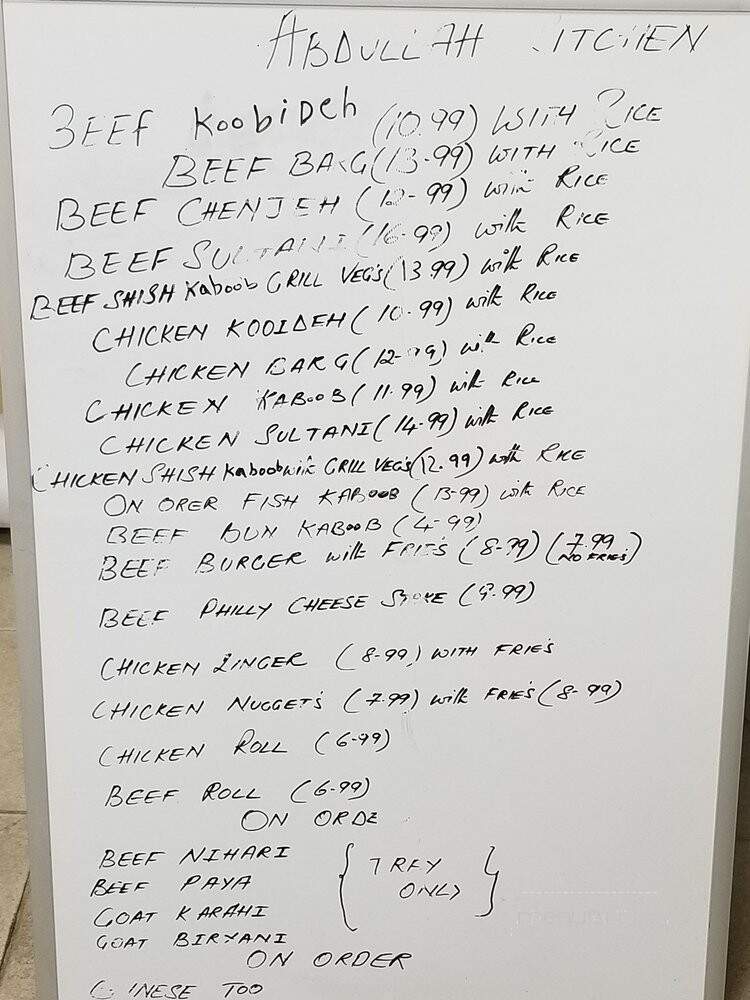 ABDULLAH KITCHEN
BEEF KOObiDeh (10.99) WITH RICE
BEEF BARG (13-99) WITH RICE
BEEF CHENJEH (12-99) with RICE
BEEF SULTANI (16-99) with RICE
BEEF SHISH KabooB GRILL VEG'S (13.99) with RICE
CHICKEN KOOIDEH (10.99) with RICE
CHICKEN BARG (12-99) with RICE
CHICKEN KABOOB (11.99) with RICE
CHICKEN SULTANI (14-99) with RICE
CHICKEN SHISH Kaboob with GRILL VEG'S (12.99) with RICE
ON ORER FISH KABOOB (13-99) with RICE
BEEF BUN KABOOB (4-99)
BEEF BURGER with FRIE'S (8-99) (7.99 NO FRIE'S)
BEEF PHILLY CHEESE (9-99)
CHICKEN ZINGER (8-99) WITH FRIE'S
CHICKEN NUGGET'S (7.99) with FRIE'S (8-99)
CHICKEN ROLL (6-99)
BEEF ROLL (6-99)
ON ORDE
BEEF NIHARI
BEEF PAYA
GOAT KARAHI
GOAT BIRYANI
TREY
ONLY
ON ORDER
CHINESE TOO